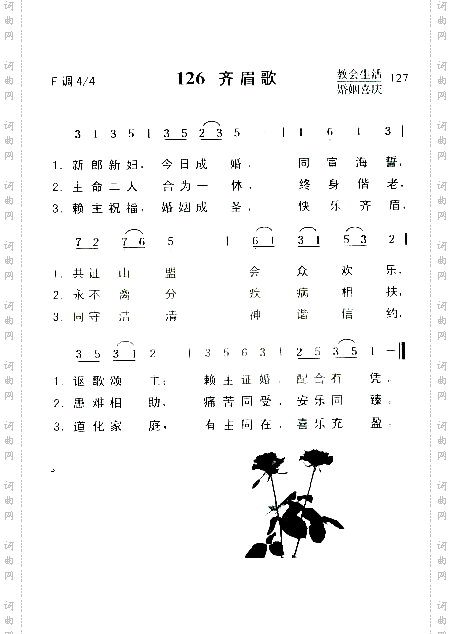 F 调 4/4 126 齐眉歌 教会生活 127
婚姻喜庆
3 1 3 5 | 1 3 5 2 3 5 | 1 6 1 3 |
1. 新郎新妇, 今日成 婚, 同 富 海 誓,
2. 主命二人 合为一 体, 终 身 偕 老,
3. 赖主祝福, 婚姻成 圣, 快 乐 齐 眉,
7 2 7 6 5 | 6 1 3 1 5 3 2 |
1. 共证 山 盟 会 众 欢 乐,
2. 永不 离 分 疾 病 相 扶,
3. 同守 洁 清 神 谐 信 约,
3 5 3 1 2 | 3 5 6 3 | 2 5 3 5 1 —
1. 讴歌颂 主; 赖主证婚, 配合有 凭,
2. 患难相 助, 痛苦同受, 安乐同 臻,
3. 道化家 庭, 有主同在, 喜乐充 盈,
词曲网
词曲网
词曲网
词曲网
词曲网
词曲网